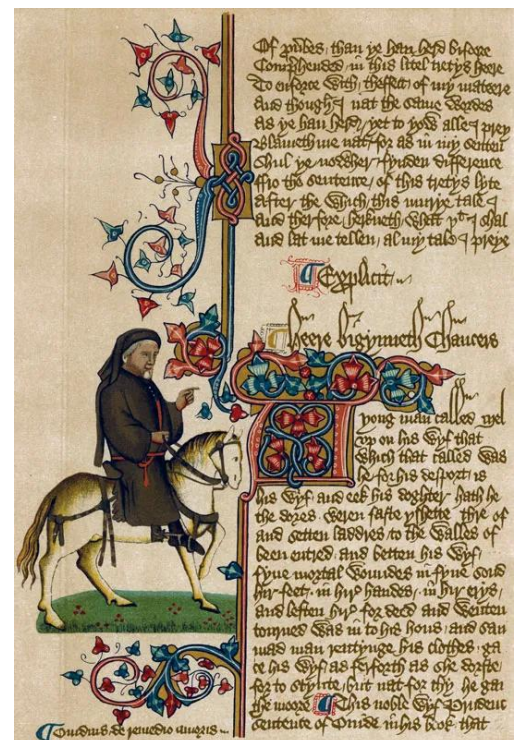 Of prubes, than ye han herd bifore
Comprehended, in this litel tretys heere
To enforce with, theffect of my matere
And though I nat the same wordes
As ye han herd, yet to yow alle I prey
Blameth me nat, for as in my senten
Shul ye nowher fynden difference
Fro the sentence, of this tretys lyte
After the which, this murye tale I
And therfore, herkneth, what yt I shal
And lat me tellen, al my tale I preye
Explicit
Heere bigynneth Chaucers
A yong man called Mel
vp on his wyf that
which that called was
he for his desport, is
his wyf, and eek his doghter, hath he
the dores weren faste yshette, thre of
and setten laddres, to the walles of
been entred, and betten his wyf,
fyue mortal woundes in fyue sond
hir feet, in hir handes, in hir erys,
and leften hir for deed and wenten
torned was in to his hous, and san
mad man rentynge his clothes, ga
te his wyf as ferforth as she dorste
for to stynte, but nat for thy he gan
the moore This noble wyf Prudent
sentence of Ouide in his book that
Ouidius de remedio amoris